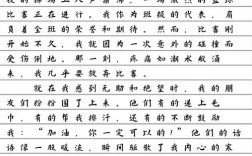 比赛正在进行。我作为班级的代表，肩
负着全班的荣誉和期待。然而，比赛刚
开始不久，我就因为一次意外的碰撞而
受伤倒地。那一刻，疼痛如潮水般涌
来，我几乎要放弃比赛。
就在我感到无助和绝望时，我的朋
友们纷纷围了上来。他们有的递上毛
巾，有的帮我擦汗，还有的不断鼓励
我：“加油，你一定可以的！”他们的话
语像一股暖流，瞬间驱散了我内心的寒